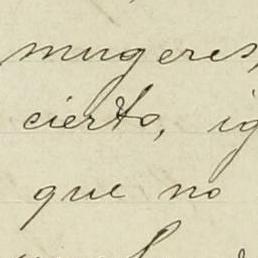 mugeres,
cierto, ig
que no